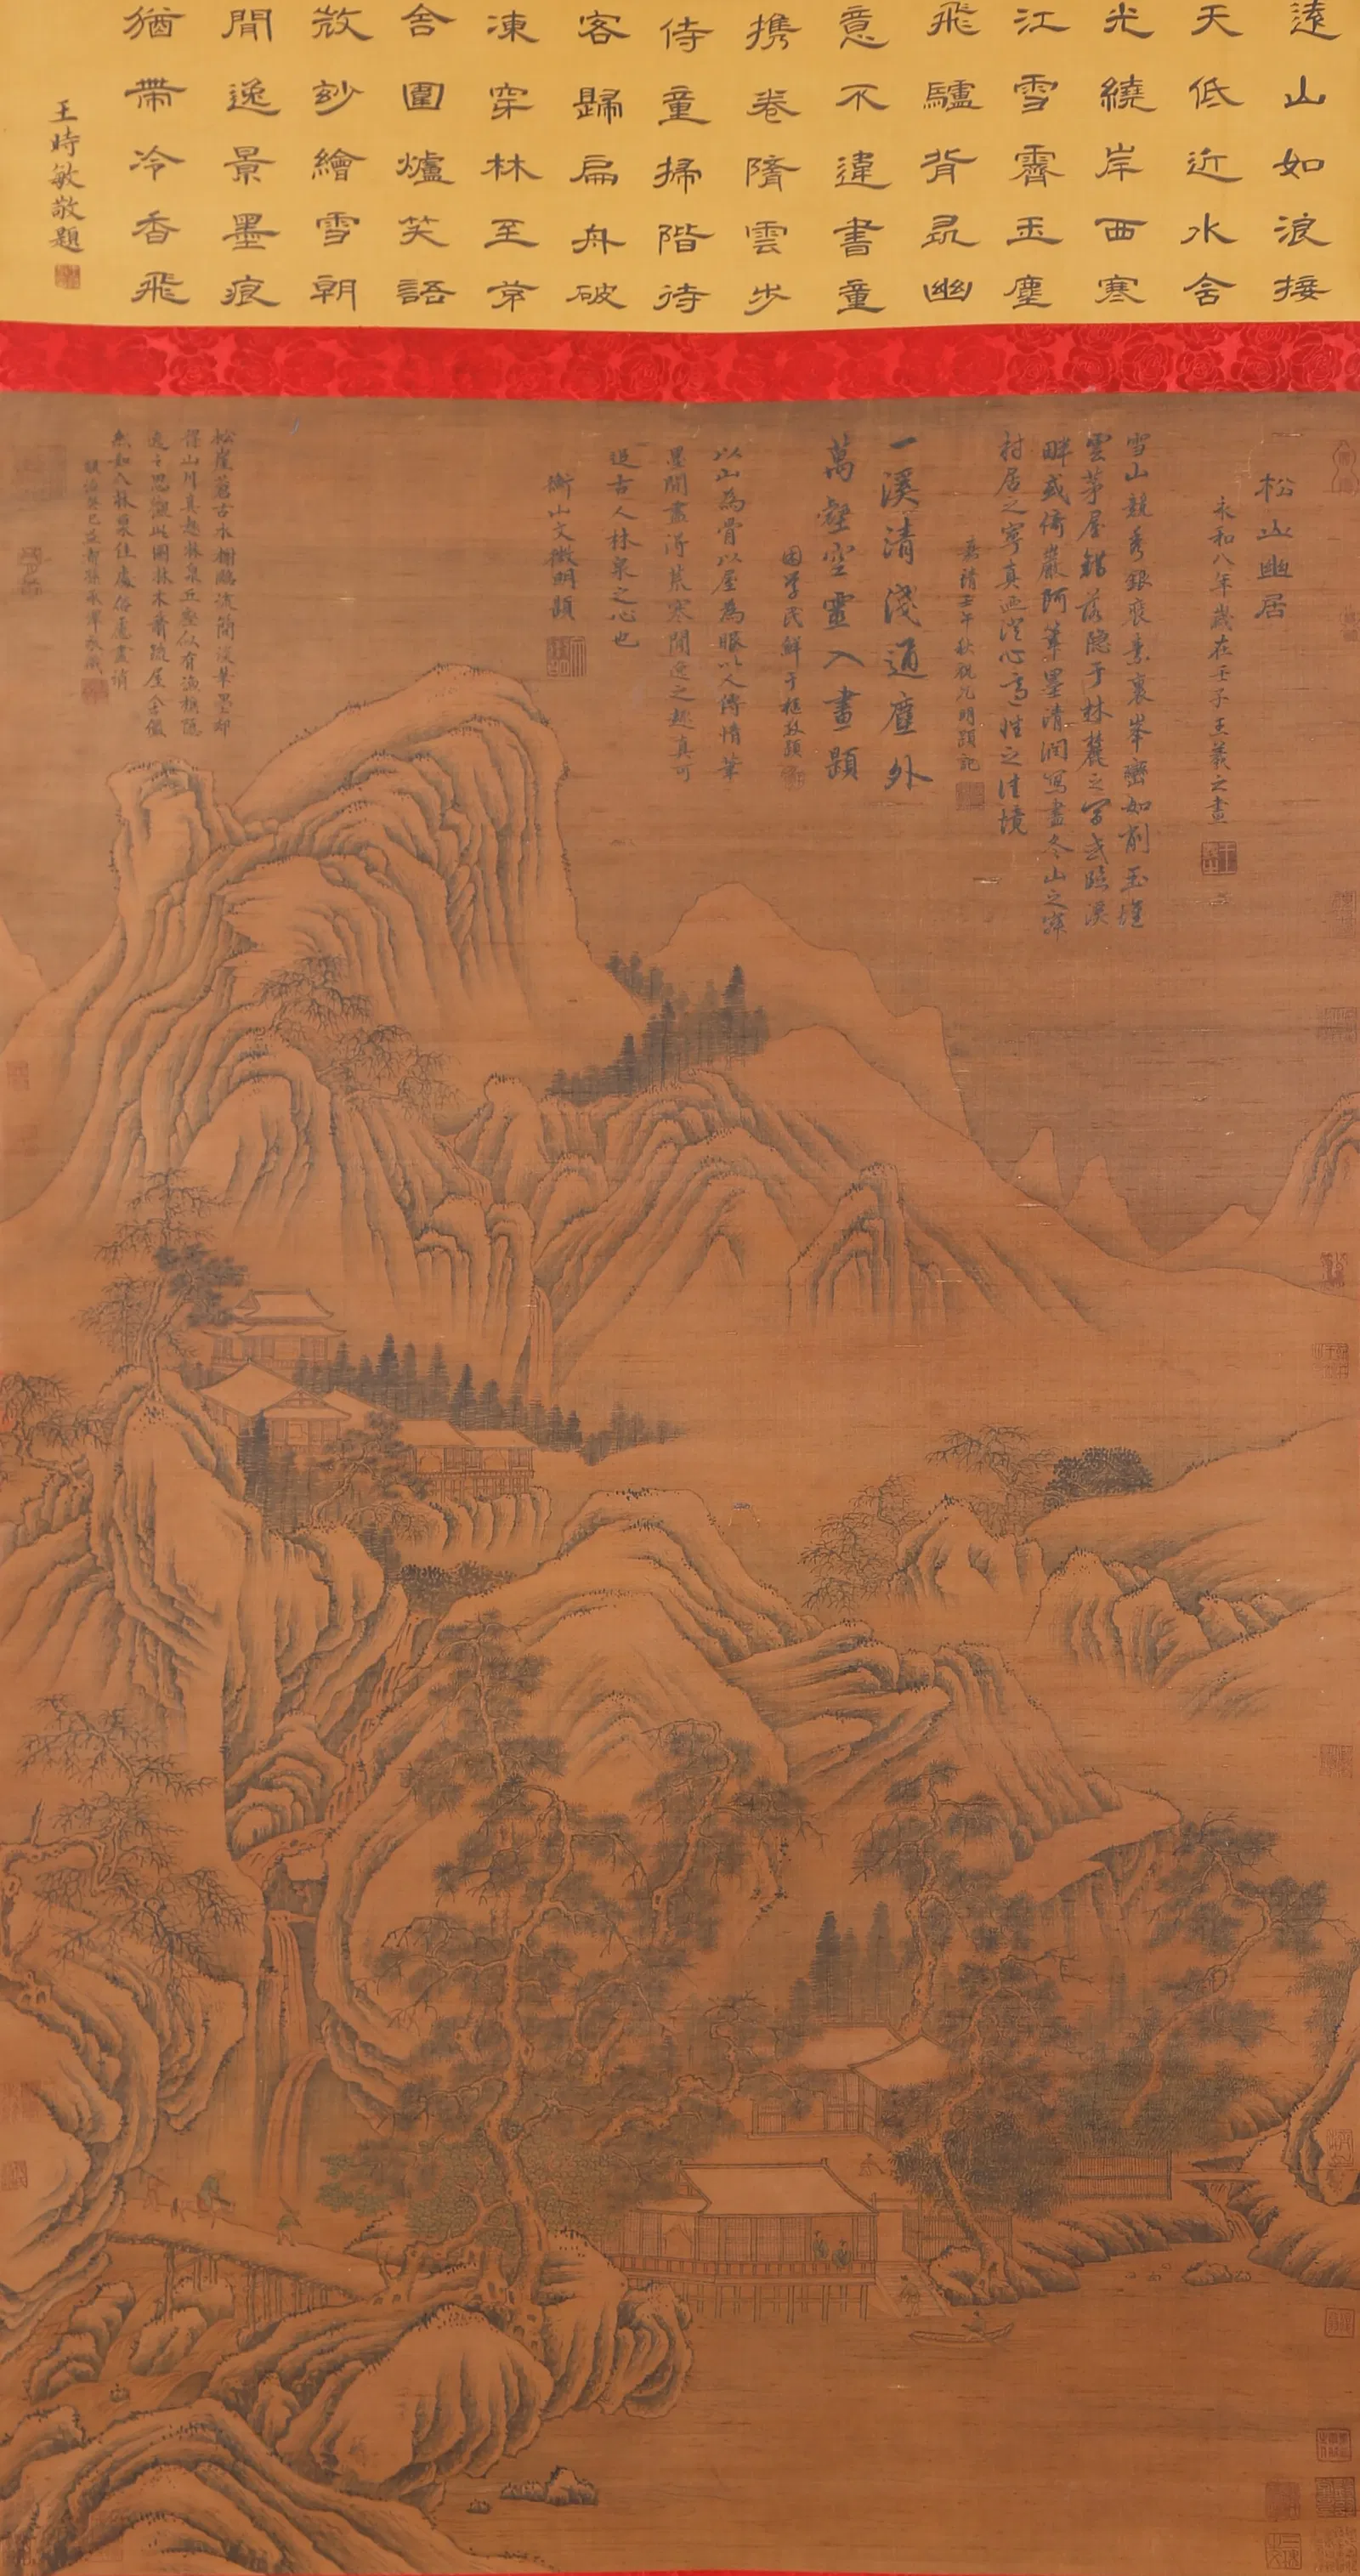 遠山如浪接
天低近水舍
光繞岸西寒
江雪霽玉塵
飛驢背尋幽
意不違書童
攜卷隨雲步
侍童掃階待
客歸扁舟破
凍穿林至茅
舍圍爐笑語
微妙繪雪朝
聞逸景墨痕
猶帶冷香飛
王時敏敬題
松山幽居
永和八年歲在壬子王羲之畫
雪山競秀銀裹素裹峯巒如削玉堆
雲茅屋錯落隐于林麓之間或臨溪
畔或倚巖阿筆墨清潤寫盡冬山之寂
村居之寧真逸澄心高性之佳境
嘉靖壬午秋祝允明題記
一溪清淺通塵外
萬壑空靈入畫題
困學民鮮于樞敬題
以山為骨以屋為眼以人傳情筆
墨間盡得荒寒閒逸之趣真可
追古人林泉之心也
衡山文徵明題
松崖蒼古水榭臨流簡淡筆墨却
得山川真趣林泉丘壑似有漁樵隐
逸之思觀此圖林木蕭疏屋舍儼
然如入林泉佳處俗慮盡消